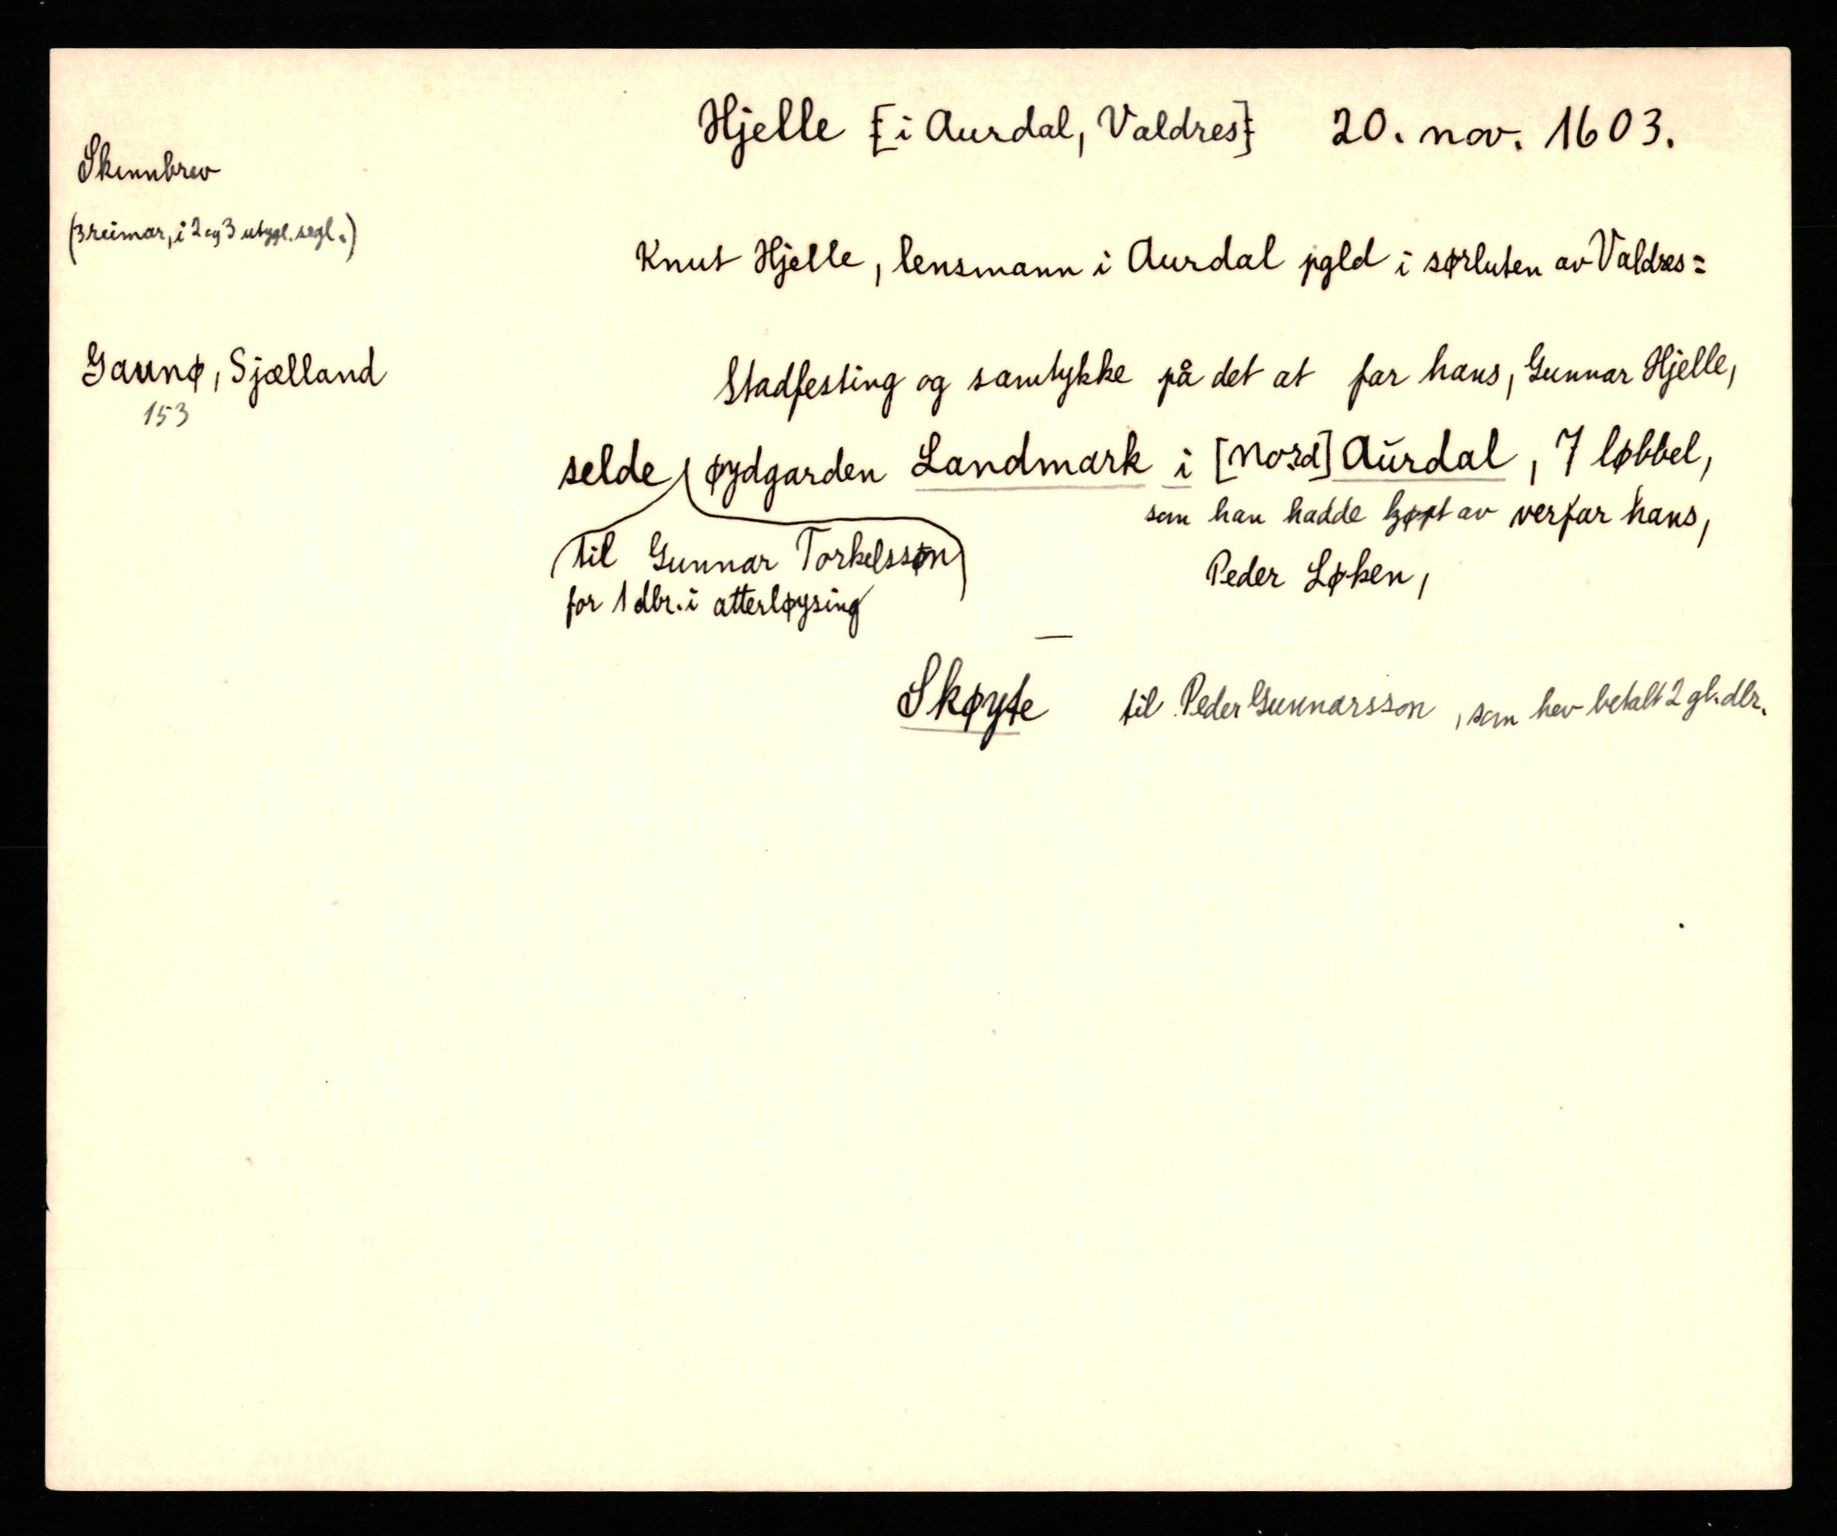 Hjelle [i Aurdal, Valdres] 20. nov. 1603.
Skinnbrev
(3 reimar, i 2 og 3 utygl. segl.)
Knut Hjelle, lensmann i Aurdal pgld i sørluten av Valdres =
Gaunø, Sjælland
153
Stadfesting og samtykke på det at far hans, Gunnar Hjelle,
selde øydgarden Landmark i [Nord] Aŭrdal, 7 løbbel,
som han hadde kjøpt av verfar hans,
Peder Løken,
til Gunnar Torkelsson
for 1 dlr. i atterløysing
—
Skøyte til Peder Gunnarsson, som hev betalt 2 gl. dlr.